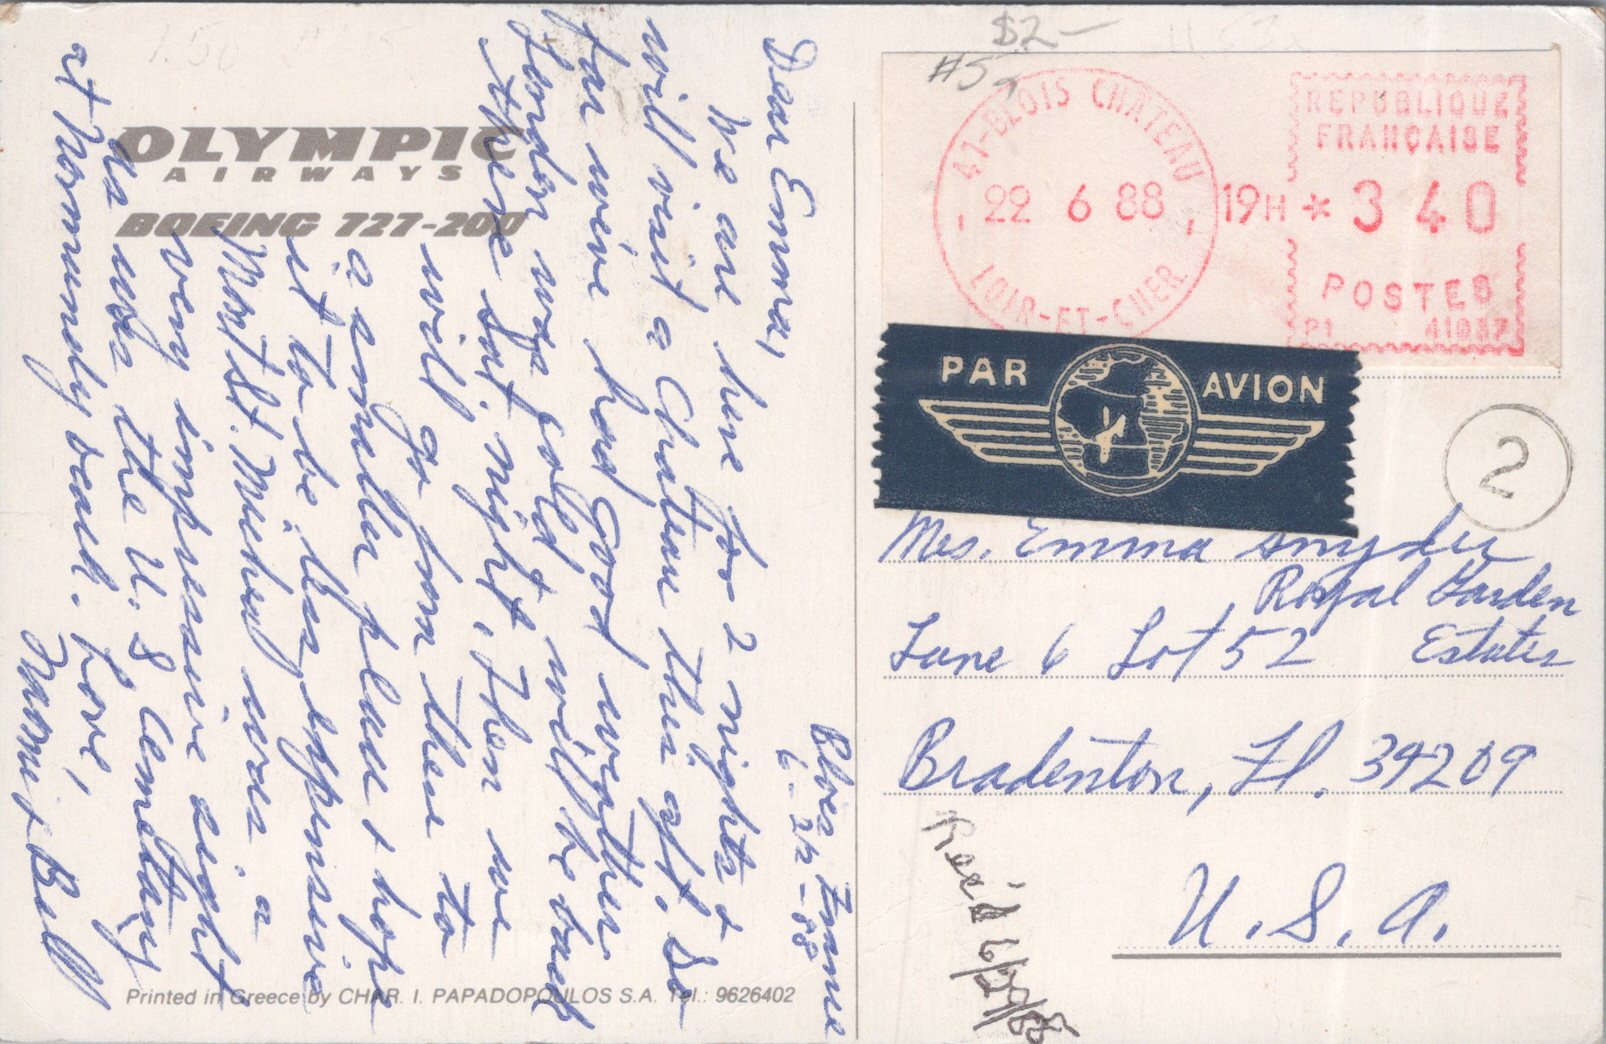 OLYMPIC
AIRWAYS
BOEING 727-200
Blois France
6-22-88
Dear Emma,
We are here for 2 nights +
will visit a Chateau this aft. So
far we've had good weather
London was cold will be back
there Sat. night. Then we
will go from there to
a smaller place + hope
it to be less expensive
Mont St. Micheal was a
very impressive sight
as was the U.S Cemetary
at Normandy beach. Love,
Bill
Printed in Greece by CHAR. I. PAPADOPOULOS S.A. Tel.: 9626402
$2-
#5
41-BLOIS CHATEAU
22 6 88
LOIR-ET-CHER
19H *
REPUBLIQUE
FRANÇAISE
3 40
POSTES
P1 41037
PAR AVION
2
Mrs. Emma Snyder
Royal Garden
Lane 6 Lot 52 Estates
Bradenton, Fl. 34209
U.S.A.
Rec'd 6/27/88